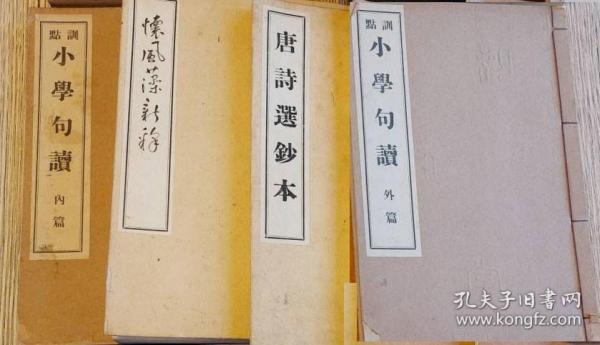 訓點
小學句讀
內篇
懷風藻新釋
唐詩選鈔本
訓點
小學句讀
外篇
孔夫子旧书网
www.kongfz.com